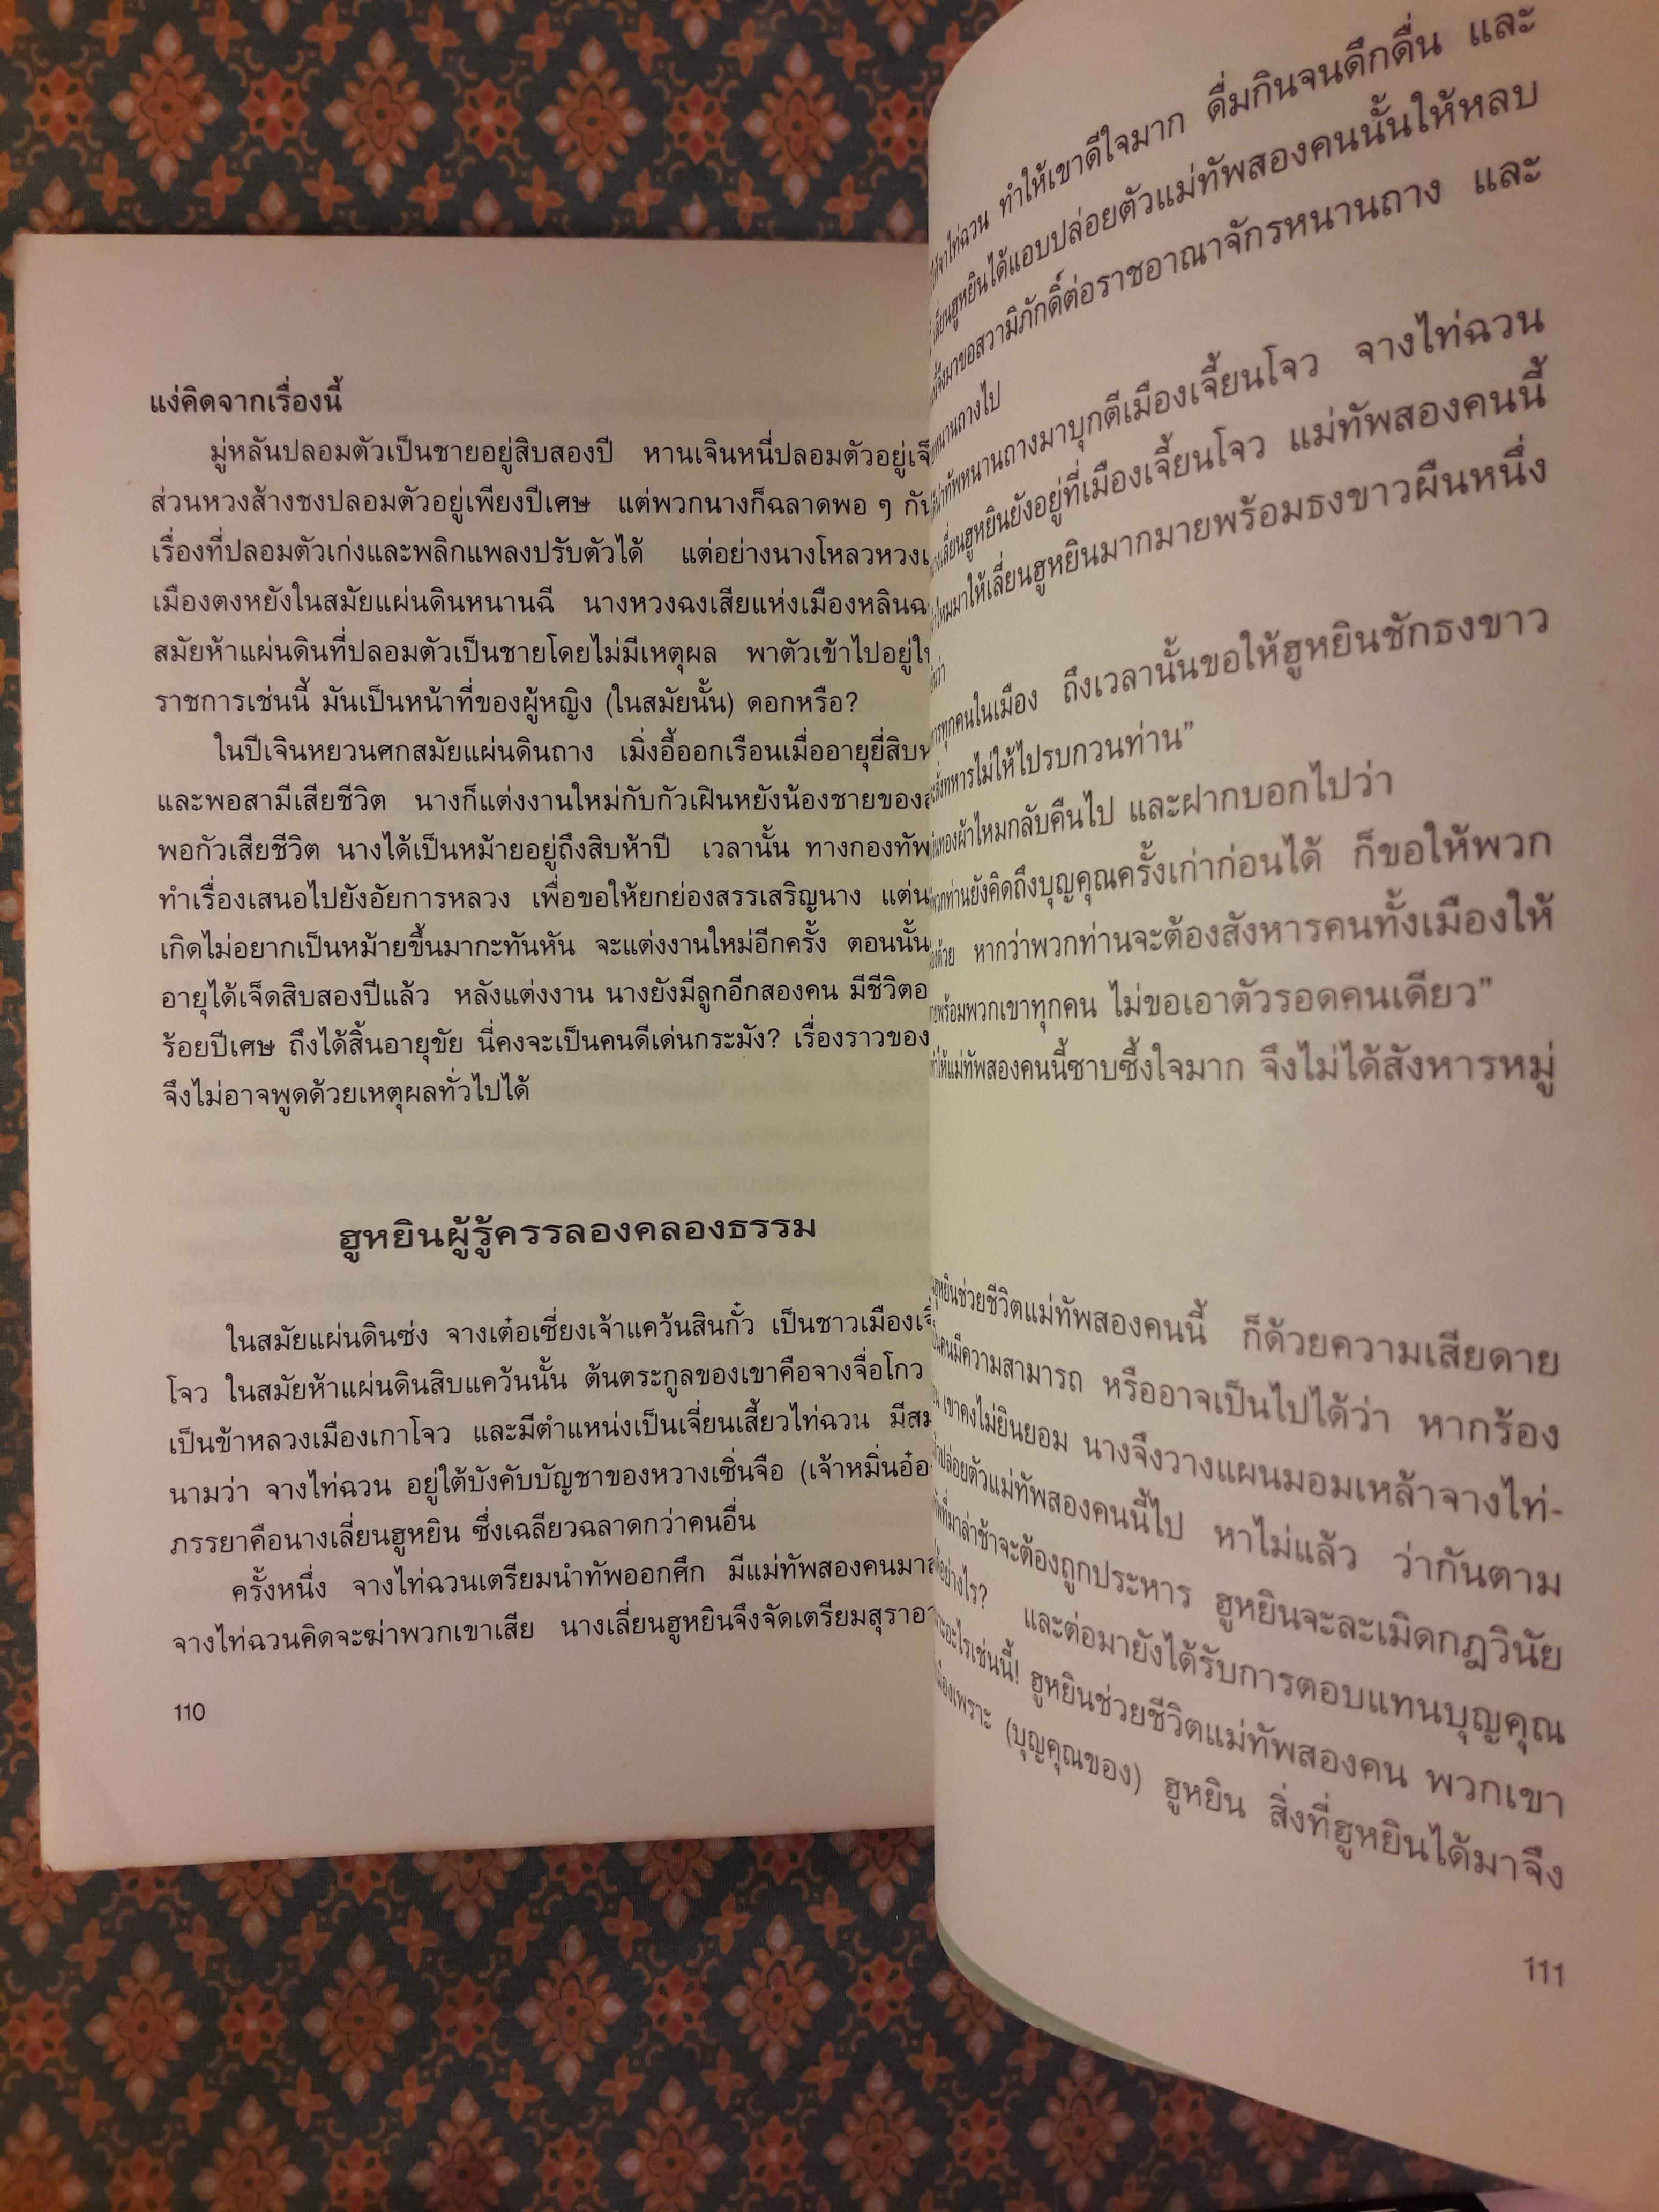 แง่คิดจากเรื่องนี้
มู่หลันปลอมตัวเป็นชายอยู่สิบสองปี หานเจินหนี่ปลอมตัวอยู่
ส่วนหวงส้างชงปลอมตัวอยู่เพียงปีเศษ แต่พวกนางก็ฉลาดพอ ๆ
เรื่องที่ปลอมตัวเก่งและพลิกแพลงปรับตัวได้ แต่อย่างนางโหลวหวง
เมืองตงหยังในสมัยแผ่นดินหนานฉี นางหวงฉงเสียแห่งเมืองหลิน
สมัยห้าแผ่นดินที่ปลอมตัวเป็นชายโดยไม่มีเหตุผล พาตัวเข้าไปอยู่
ราชการเช่นนี้ มันเป็นหน้าที่ของผู้หญิง (ในสมัยนั้น) ดอกหรือ?
ในปีเจินหยวนศกสมัยแผ่นดินถาง เมิ่งอี้ออกเรือนเมื่ออายุยี่สิบ
และพอสามีเสียชีวิต นางก็แต่งงานใหม่กับกัวเฝินหยังน้องชายของ
พอกัวเสียชีวิต นางได้เป็นหม้ายอยู่ถึงสิบห้าปี เวลานั้น ทางกองทัพ
ทำเรื่องเสนอไปยังอัยการหลวง เพื่อขอให้ยกย่องสรรเสริญนาง
เกิดไม่อยากเป็นหม้ายขึ้นมากะทันหัน จะแต่งงานใหม่อีกครั้ง ตอนนั้น
อายุได้เจ็ดสิบสองปีแล้ว หลังแต่งงาน นางยังมีลูกอีกสองคน มีชีวิต
ร้อยปีเศษ ถึงได้สิ้นอายุขัย นี่คงจะเป็นคนดีเด่นกระมัง? เรื่องราวของ
จึงไม่อาจพูดด้วยเหตุผลทั่วไปได้
ฮูหยินผู้รู้ครรลองคลองธรรม
ในสมัยแผ่นดินซ่ง จางเต๋อเซี่ยงเจ้าแคว้นสินกั๋ว เป็นชาวเมือง
โจว ในสมัยห้าแผ่นดินสิบแคว้นนั้น ต้นตระกูลของเขาคือจางจื่อโกว
เป็นข้าหลวงเมืองเกาโจว และมีตำแหน่งเป็นเจี่ยนเสี้ยวไท่ฉวน
นามว่า จางไท่ฉวน อยู่ใต้บังคับบัญชาของหวางเซิ่นจือ
ภรรยาคือนางเลี่ยนฮูหยิน ซึ่งเฉลียวฉลาดกว่าคนอื่น
ครั้งหนึ่ง จางไท่ฉวนเตรียมนำทัพออกศึก มีแม่ทัพสองคน
จางไท่ฉวนคิดจะฆ่าพวกเขาเสีย นางเลี่ยนฮูหยินจึงจัดเตรียมสุรา
110
ทำให้เขาดีใจมาก ดื่มกินจนดึกดื่น และ
ได้แอบปล่อยตัวแม่ทัพสองคนนั้นให้หลบ
มาขอสวามิภักดิ์ต่อราชอาณาจักรหนานถาง และ
หนานถางไป
ทัพหนานถางมาบุกตีเมืองเจี้ยนโจว จางไท่ฉวน
เลี่ยนฮูหยินยังอยู่ที่เมืองเจี้ยนโจว แม่ทัพสองคนนี้
มาให้เลี่ยนฮูหยินมากมายพร้อมธงขาวผืนหนึ่ง
ทุกคนในเมือง ถึงเวลานั้นขอให้ฮูหยินชักธงขาว
สั่งทหารไม่ให้ไปรบกวนท่าน”
ผ้าไหมกลับคืนไป และฝากบอกไปว่า
พวกท่านยังคิดถึงบุญคุณครั้งเก่าก่อนได้ ก็ขอให้พวก
ด้วย หากว่าพวกท่านจะต้องสังหารคนทั้งเมืองให้
พร้อมพวกเขาทุกคน ไม่ขอเอาตัวรอดคนเดียว”
ให้แม่ทัพสองคนนี้ซาบซึ้งใจมาก จึงไม่ได้สังหารหมู่
ฮูหยินช่วยชีวิตแม่ทัพสองคนนี้ ก็ด้วยความเสียดาย
คนมีความสามารถ หรืออาจเป็นไปได้ว่า หากร้อง
เขาคงไม่ยินยอม นางจึงวางแผนมอมเหล้าจางไท่-
ปล่อยตัวแม่ทัพสองคนนี้ไป หาไม่แล้ว ว่ากันตาม
ที่มาล่าช้าจะต้องถูกประหาร ฮูหยินจะละเมิดกฎวินัย
อย่างไร? และต่อมายังได้รับการตอบแทนบุญคุณ
อะไรเช่นนี้! ฮูหยินช่วยชีวิตแม่ทัพสองคน พวกเขา
เพราะ (บุญคุณของ) ฮูหยิน สิ่งที่ฮูหยินได้มาจึง
111